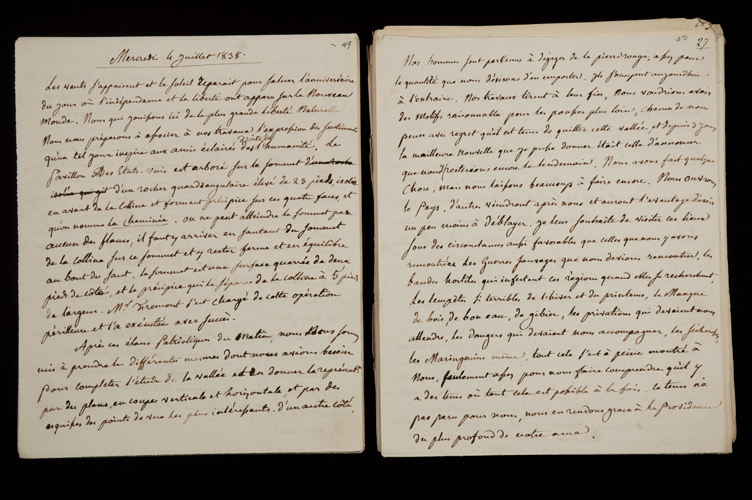 49
Mercredi 4 Juillet 1838.
Les vents s'appaisent et le soleil reparait pour saluer l'anniversaire
du jour où l'indépendance et la liberté ont apparu sur le Nouveau
Monde. Nous qui jouissons ici de la plus grande liberté Naturelle
Nous nous préparons à associer à nos travaux l'expression des sentiments
qu'un tel jour inspire aux amis éclairés des droits de l'humanité. Le
Pavillon Des Etats-Unis est arboré sur le sommet d'une roche
isolée qui git d'un rocher quadrangulaire élevé de 23 pieds, isolée
en avant de la colline et formant précipice sur ses quatre faces, et
qu'on nomme la Cheminée. On ne peut atteindre le sommet par
aucun des flancs, il faut y arriver en sautant du sommet
de la colline sur ce sommet et y rester ferme et en équilibre
au bout du saut. Le sommet est une surface quarrée de deux
pieds de côté et le précipice qui le sépare de la colline a 5 pieds
de largeur. Mr. Fremont s'est chargé de cette opération
périlleuse et l'a exécutée avec succès.
Après ces élans patriotiques du matin, nous nous sommes
mis à prendre les différentes mesures dont nous avions besoin
pour completter l'étude de la vallée et en donner la représent.
par des plans, en coupes verticale et horizontale et par des
esquisses des points de vue les plus intéressants. D'un autre côté,
50
27
Nos hommes sont parvenus à dégager de la pierre rouge, assez pour
la quantité que nous désirons d'en emporter. Ils s'occupent aujourd'hui
à l'extraire. Nos travaux tirent à leur fin, Nous voudrions avoir
des motifs raisonnables pour les pousser plus loin, chacun de nous
pense avec regret qu'il est tems de quitter cette vallée, et depuis 3 jours
la meilleure nouvelle que je puisse donner était celle d'annoncer
que nous resterions encore le lendemain. Nous avons fait quelque
chose, mais nous laissons beaucoup à faire encore. Nous ouvrons
le pays, d'autres viendront après nous et auront l'avantage d'avoir
un peu moins à déblayer. Je leur souhaite de visiter ces lieux
sous des circonstances aussi favorables que celles que nous y avons
rencontrées. Les Guerres sauvages que nous devions rencontrer, les
bandes hostiles qui infestent ces régions quand elles se recherchent,
les tempêtes si terribles de l'hiver et du printems, le Manque
de bois, de bon eau, de gibier, les privations qui devaient nous
attendre, les dangers qui devaient nous accompagner, les
les Maringouins même, tout cela s'est à peine montré à
Nous, seulement assez pour nous faire comprendre qu'il y
a des lieux où tout cela est possible à la fois. Le tems n'a
pas paru pour nous, nous en rendons grace à la Providence
du plus profond de notre ame.